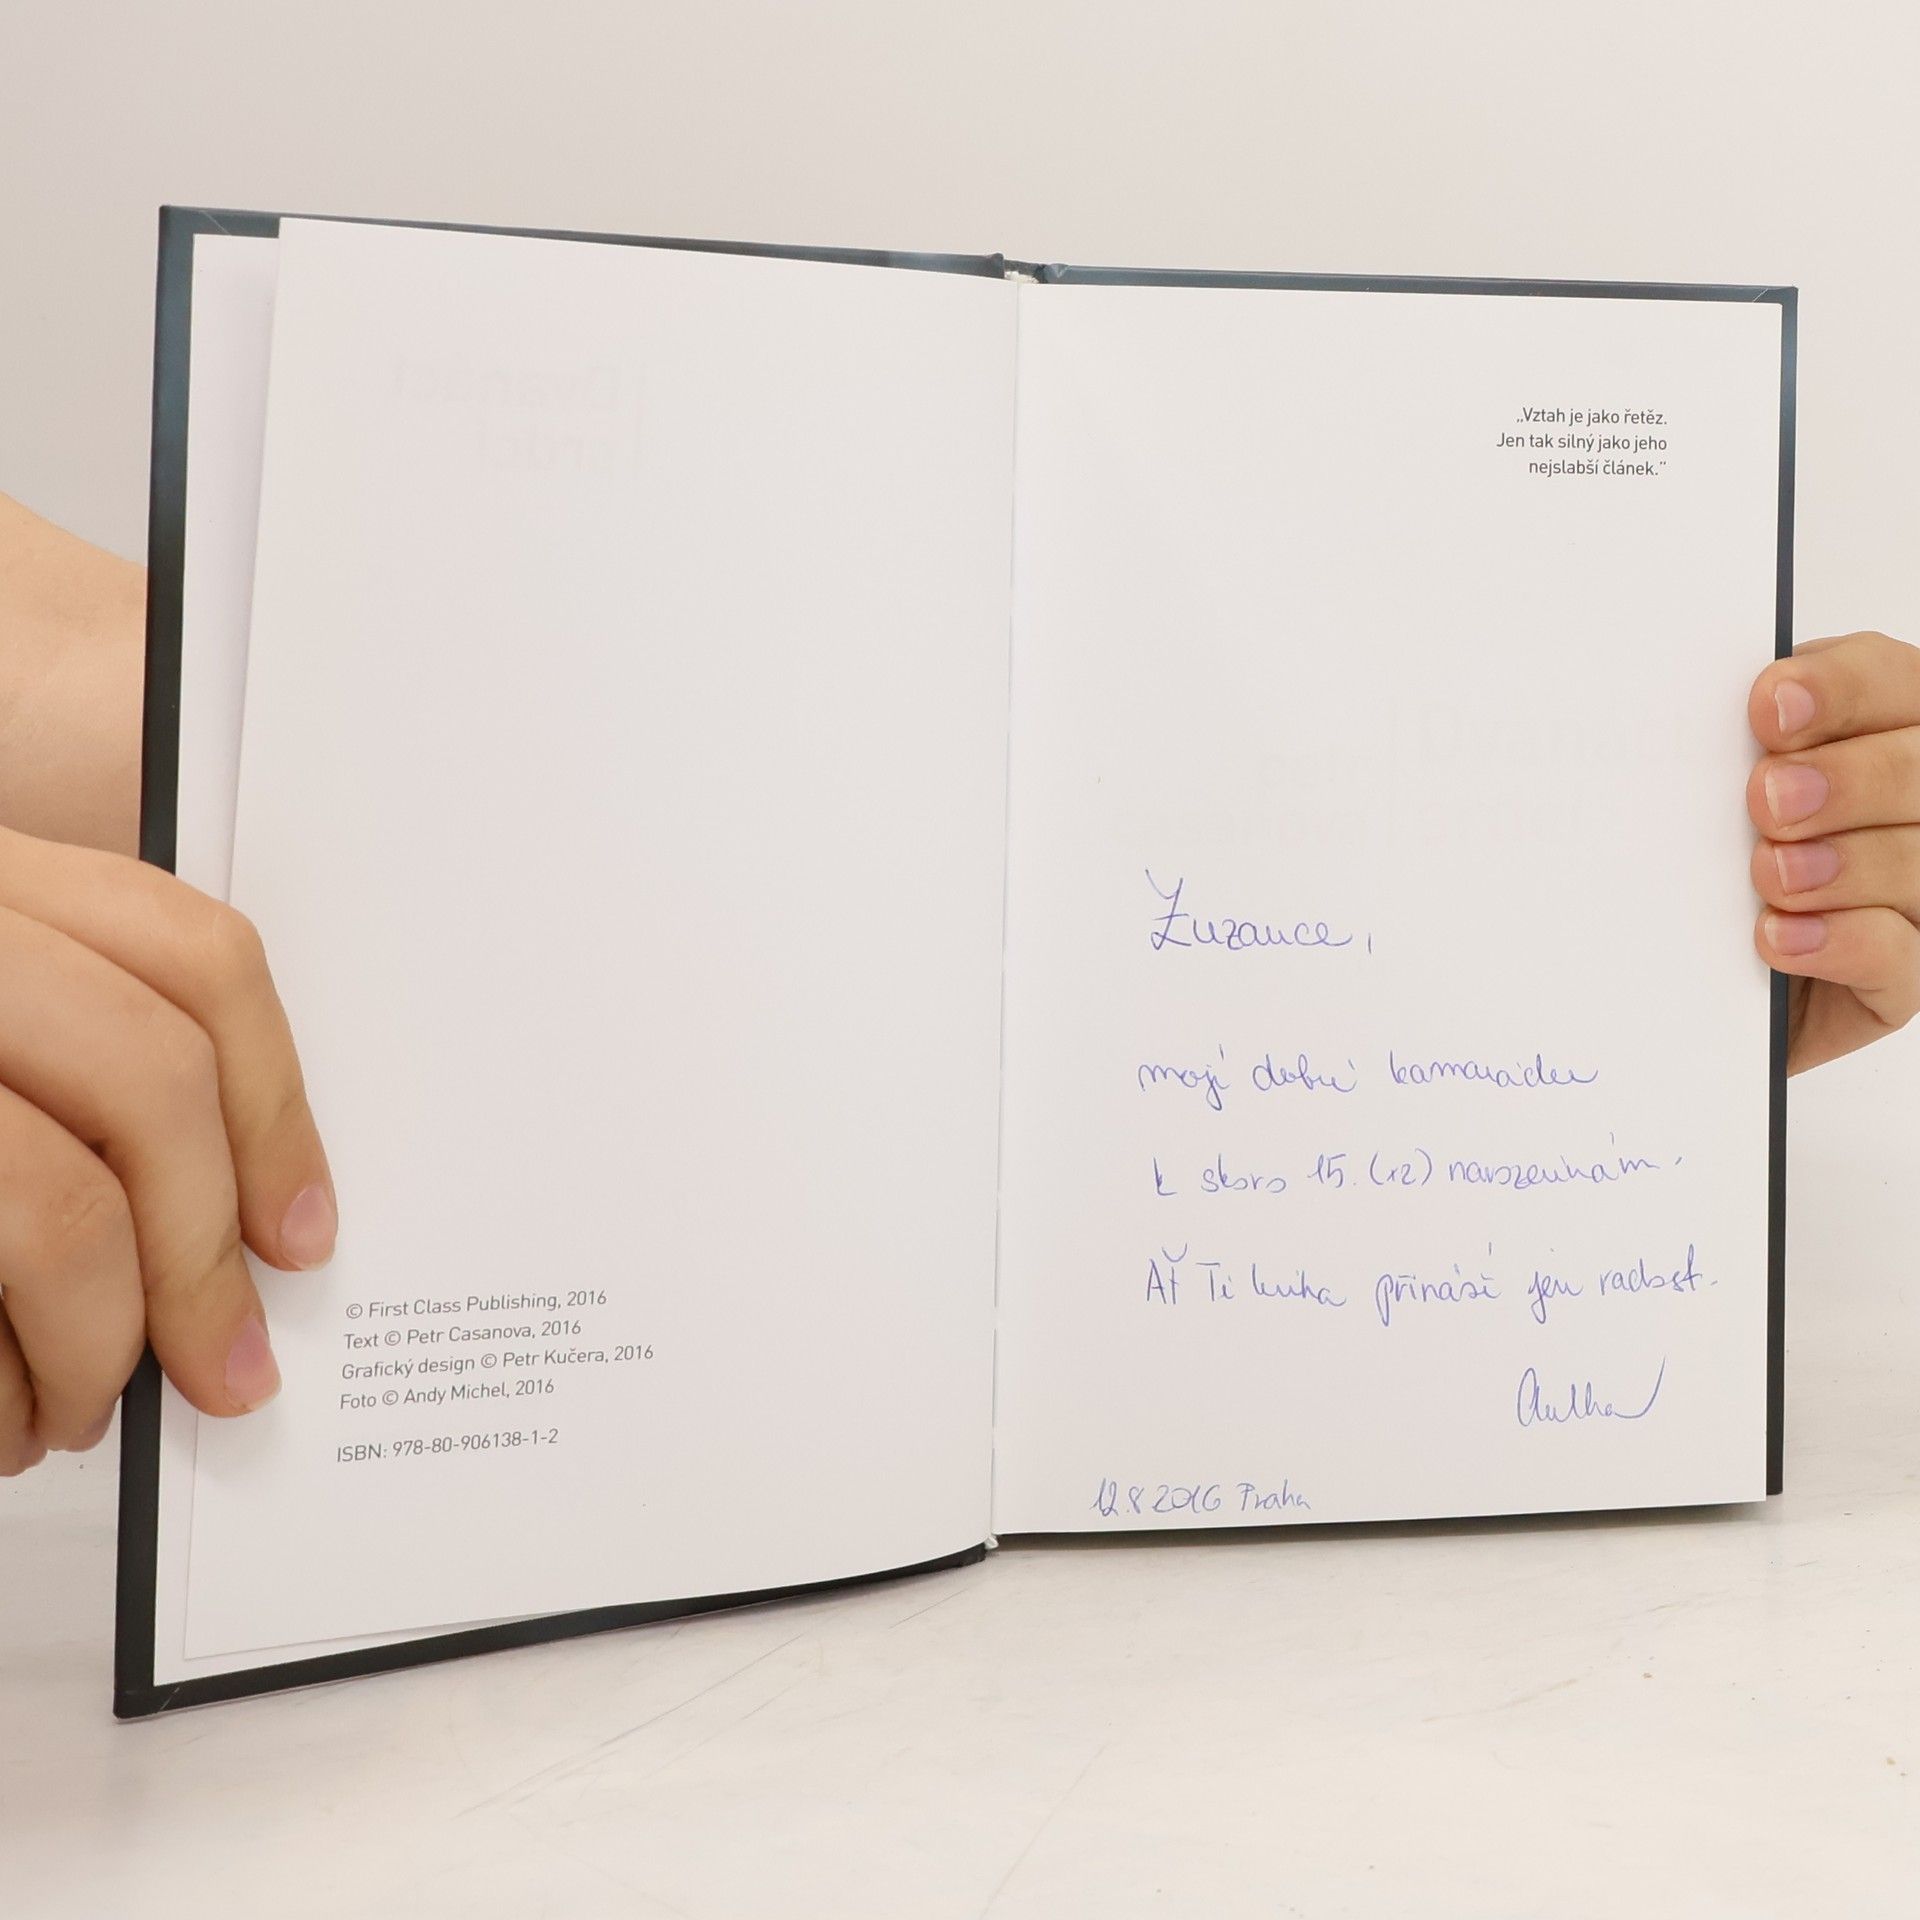 © First Class Publishing, 2016
Text © Petr Casanova, 2016
Grafický design © Petr Kučera, 2016
Foto © Andy Michel, 2016
ISBN: 978-80-906138-1-2
„Vztah je jako řetěz.
Jen tak silný jako jeho
nejslabší článek.“
Zuzance,
mojí dobré kamarádce
k skoro 15. (12) narozeninám.
Ať Ti kniha přináší jen radost.
12.8.2016 Praha